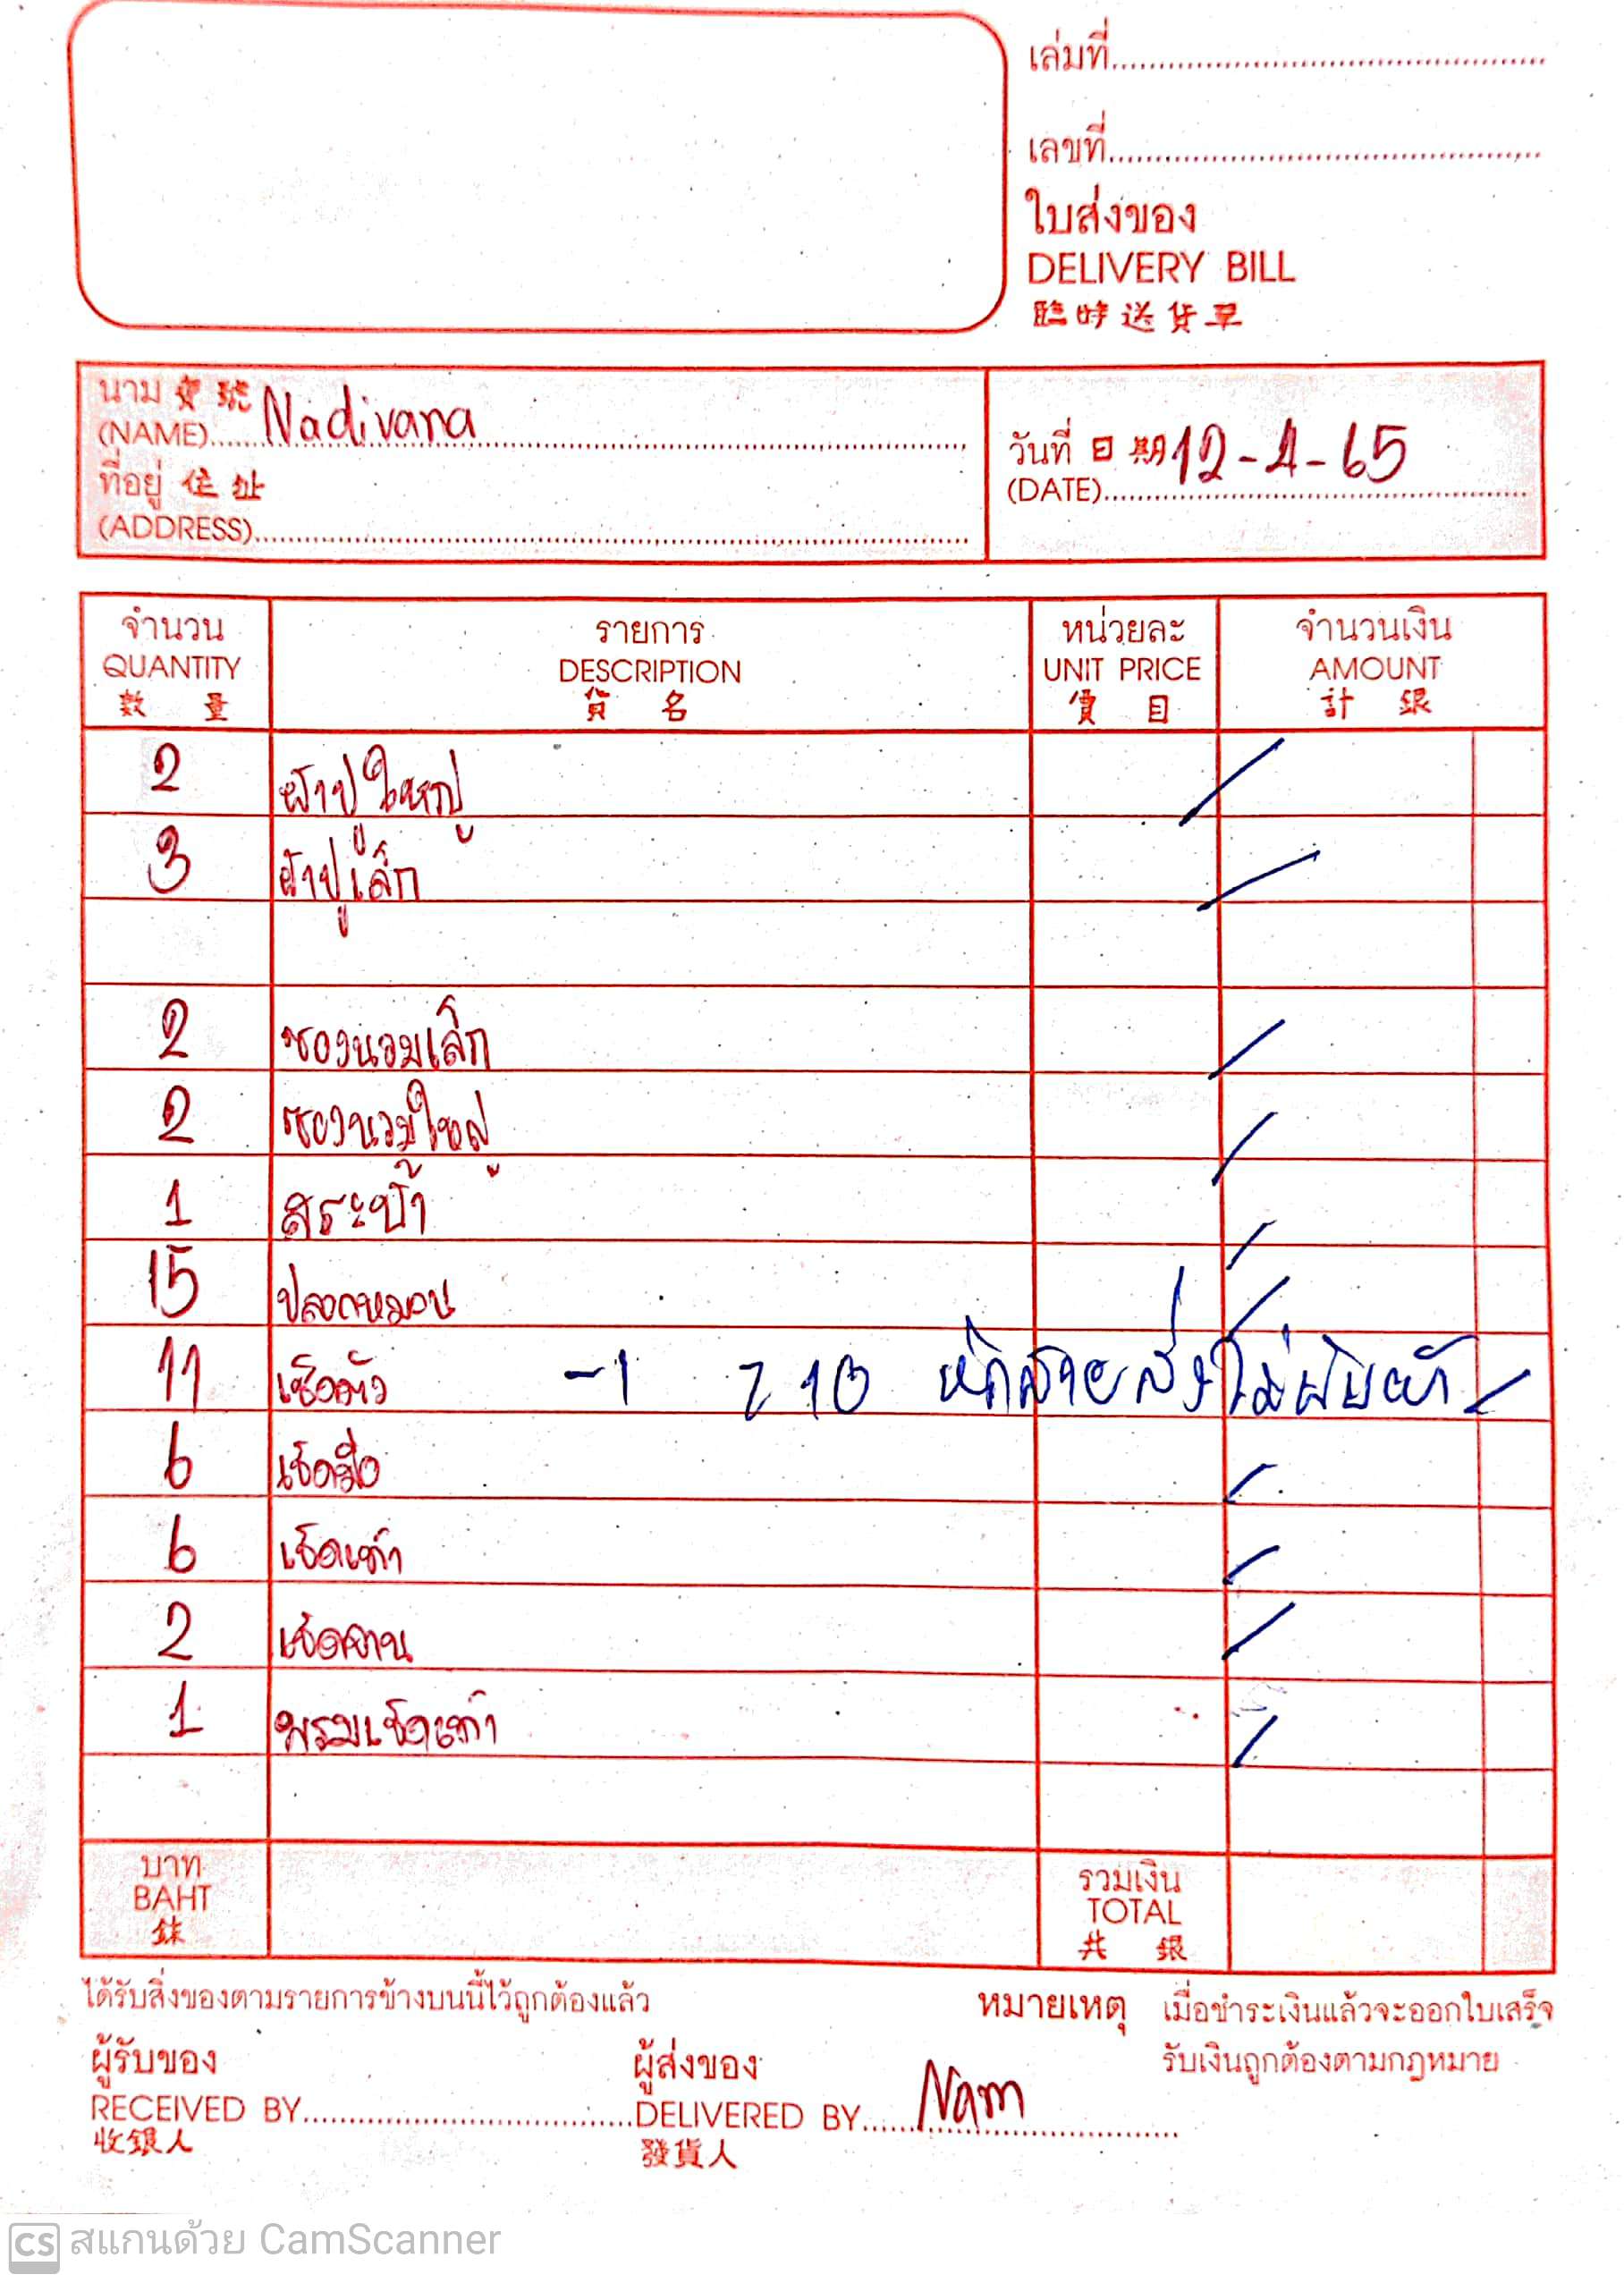 เล่มที่
เลขที่
ใบส่งของ
DELIVERY BILL
臨時送貨單
นาม 寶號 Nadivana
(NAME)
ที่อยู่ 住址
(ADDRESS)
วันที่ 日期 12-4-65
(DATE)
จำนวน รายการ หน่วยละ จำนวนเงิน
QUANTITY DESCRIPTION UNIT PRICE AMOUNT
數量 貨名 價目 計銀
2 ผ้าปูใหญ่
3 ผ้าปูเล็ก
2 ซองนวมเล็ก
2 ซองนวมใหญ่
1 สระน้ำ
15 ปลอกหมอน
11 เช็ดตัว -1 10
6 เช็ดมือ
6 เช็ดเท้า
2 เช็ดจาน
1 พรมเช็ดเท้า
บาท รวมเงิน
BAHT TOTAL
銖 共銀
ได้รับสิ่งของตามรายการข้างบนนี้ไว้ถูกต้องแล้ว หมายเหตุ เมื่อชำระเงินแล้วจะออกใบเสร็จ
รับเงินถูกต้องตามกฎหมาย
ผู้รับของ ผู้ส่งของ
RECEIVED BY DELIVERED BY Nam
收銀人 發貨人
CS สแกนด้วย CamScanner